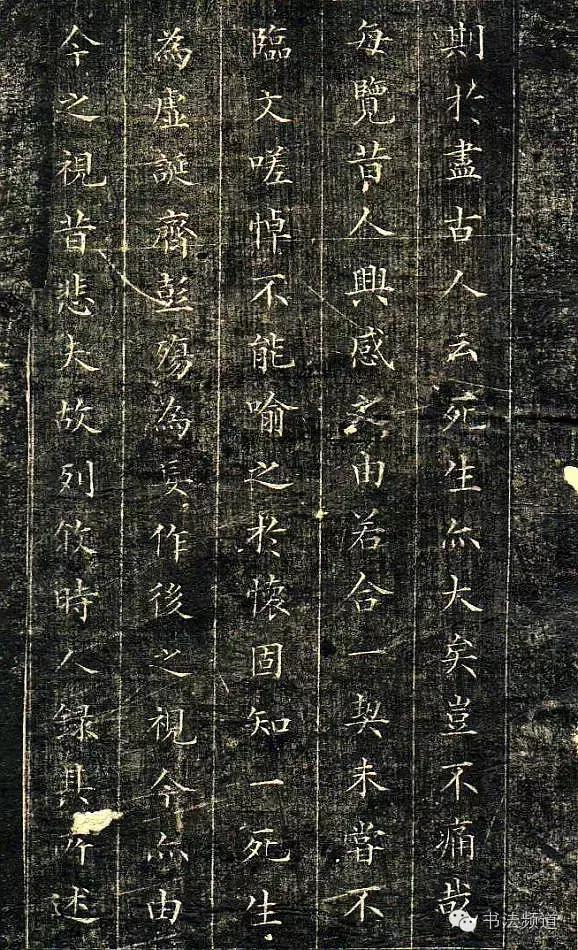 期於盡古人云死生亦大矣豈不痛哉
每覽昔人興感之由若合一契未嘗不
臨文嗟悼不能喻之於懷固知一死生
為虛誕齊彭殤為妄作後之視今亦由
今之視昔悲夫故列敘時人録其所述
书法频道